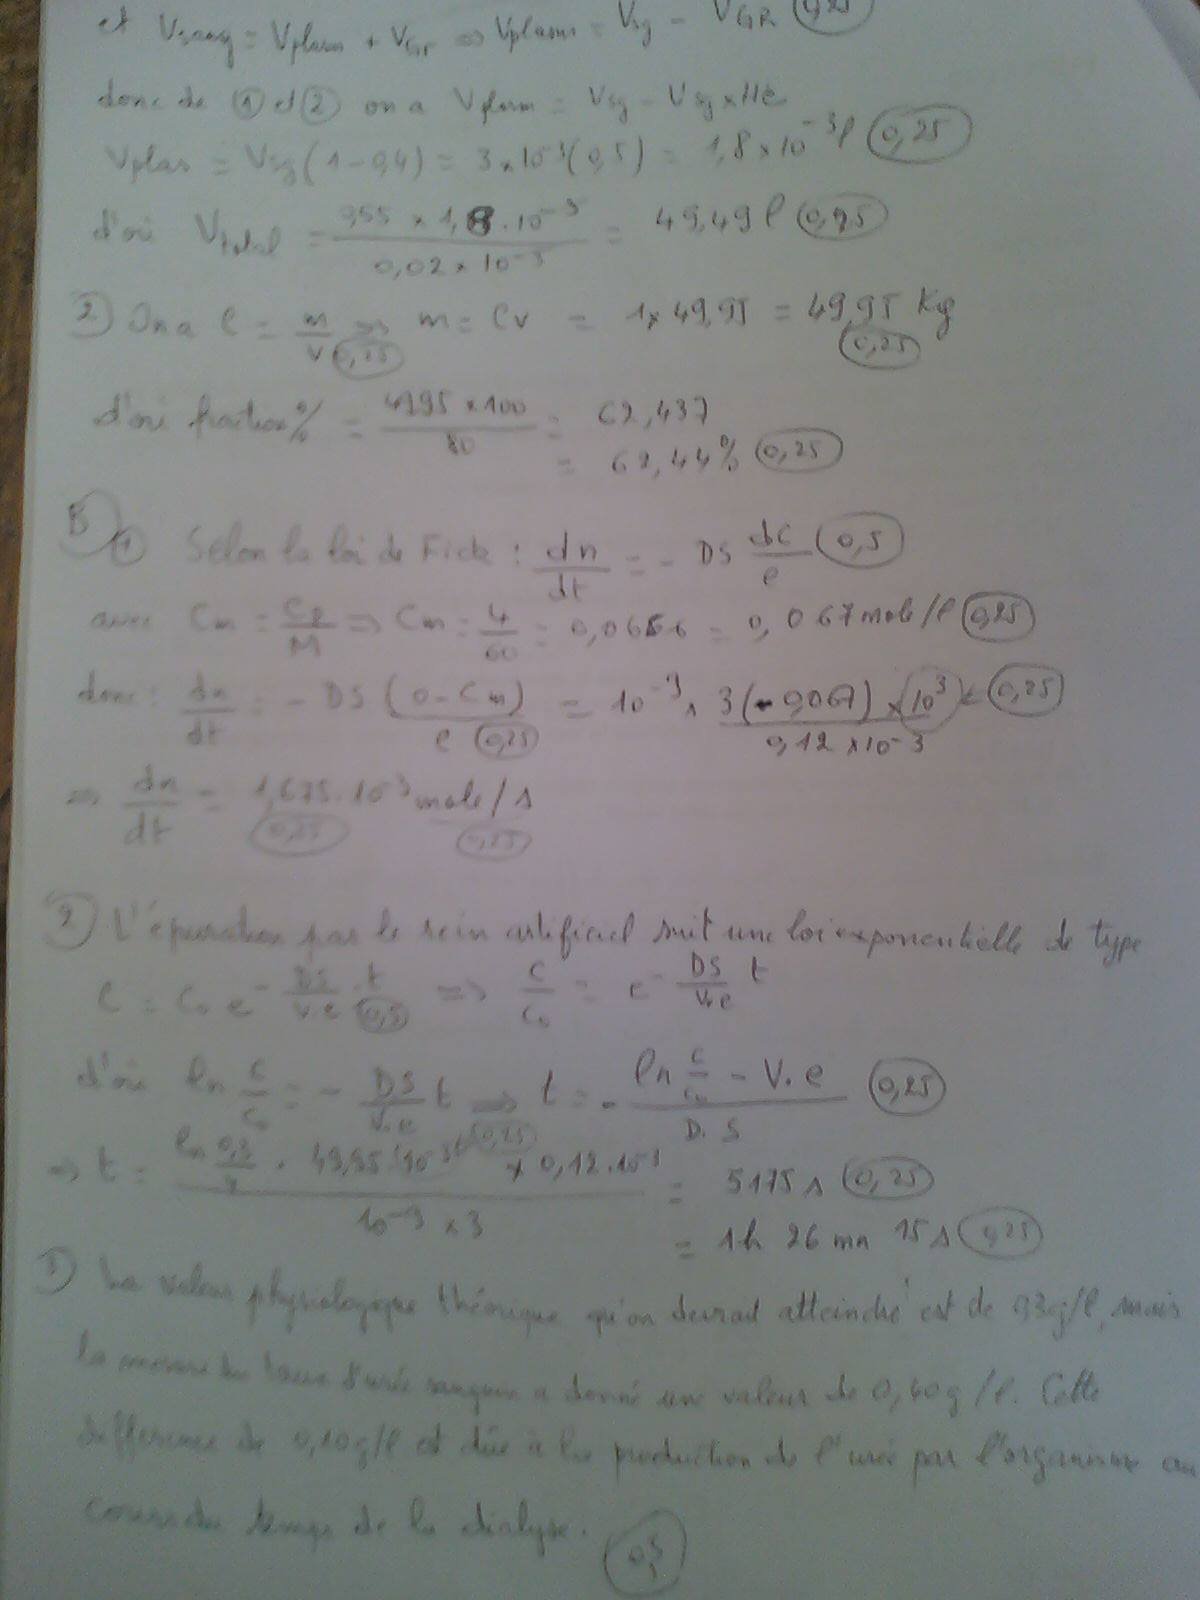 et Vsang = Vplasm + VGr ⇒ Vplasm = Vsg - VGR (0,25)
donc de ① et ② on a Vplasm = Vsg - Vsg × He
Vplas = Vsg (1 - 0,4) = 3 × 10⁻³ (0,5) = 1,8 × 10⁻³ l (0,25)
d'où Vtotal = 0,55 × 1,8 . 10⁻³ / 0,02 × 10⁻³ = 49,49 l
2) On a C = m/V (0,25) ⇒ m = CV = 1 × 49,95 = 49,95 Kg (0,25)
d'où fraction % = 4995 × 100 / 80 = 62,437
= 62,44 % (0,25)
B) ① Selon la loi de Fick : dn/dt = - DS dC/e (0,5)
avec Cm = Cp/M ⇒ Cm = 4/60 = 0,0666 = 0,067 mole/l (0,25)
donc : dn/dt = - DS (0 - Cm)/e (0,25) = 10⁻⁹ × 3 (-0,067) × 10³ / 0,12 × 10⁻³ ← (0,25)
⇒ dn/dt = 1,675 . 10⁻³ mole/s
(0,25) (0,25)
2) L'épuration par le rein artificiel suit une loi exponentielle de type
C = C₀ e^(- DS/V.e . t) (0,5) ⇒ C/C₀ = e^(- DS/V.e t)
d'où ln C/C₀ = - DS/V.e t ⇒ t = - ln C/C₀ - V. e / D. S (0,25)
⇒ t = ln 0,3/4 . 49,95 . 10⁻³ (0,25) × 0,12 . 10⁻³ / 10⁻⁹ × 3 = 5175 s (0,25)
= 1h 26 mn 15 s (0,25)
3) La valeur physiologique théorique qu'on devrait atteindre est de 0,3 g/l, mais
la mesure du taux d'urée sanguin a donné une valeur de 0,40 g/l. Cette
différence de 0,10 g/l est dûe à la production de l'urée par l'organisme au
cours du temps de la dialyse. (0,5)